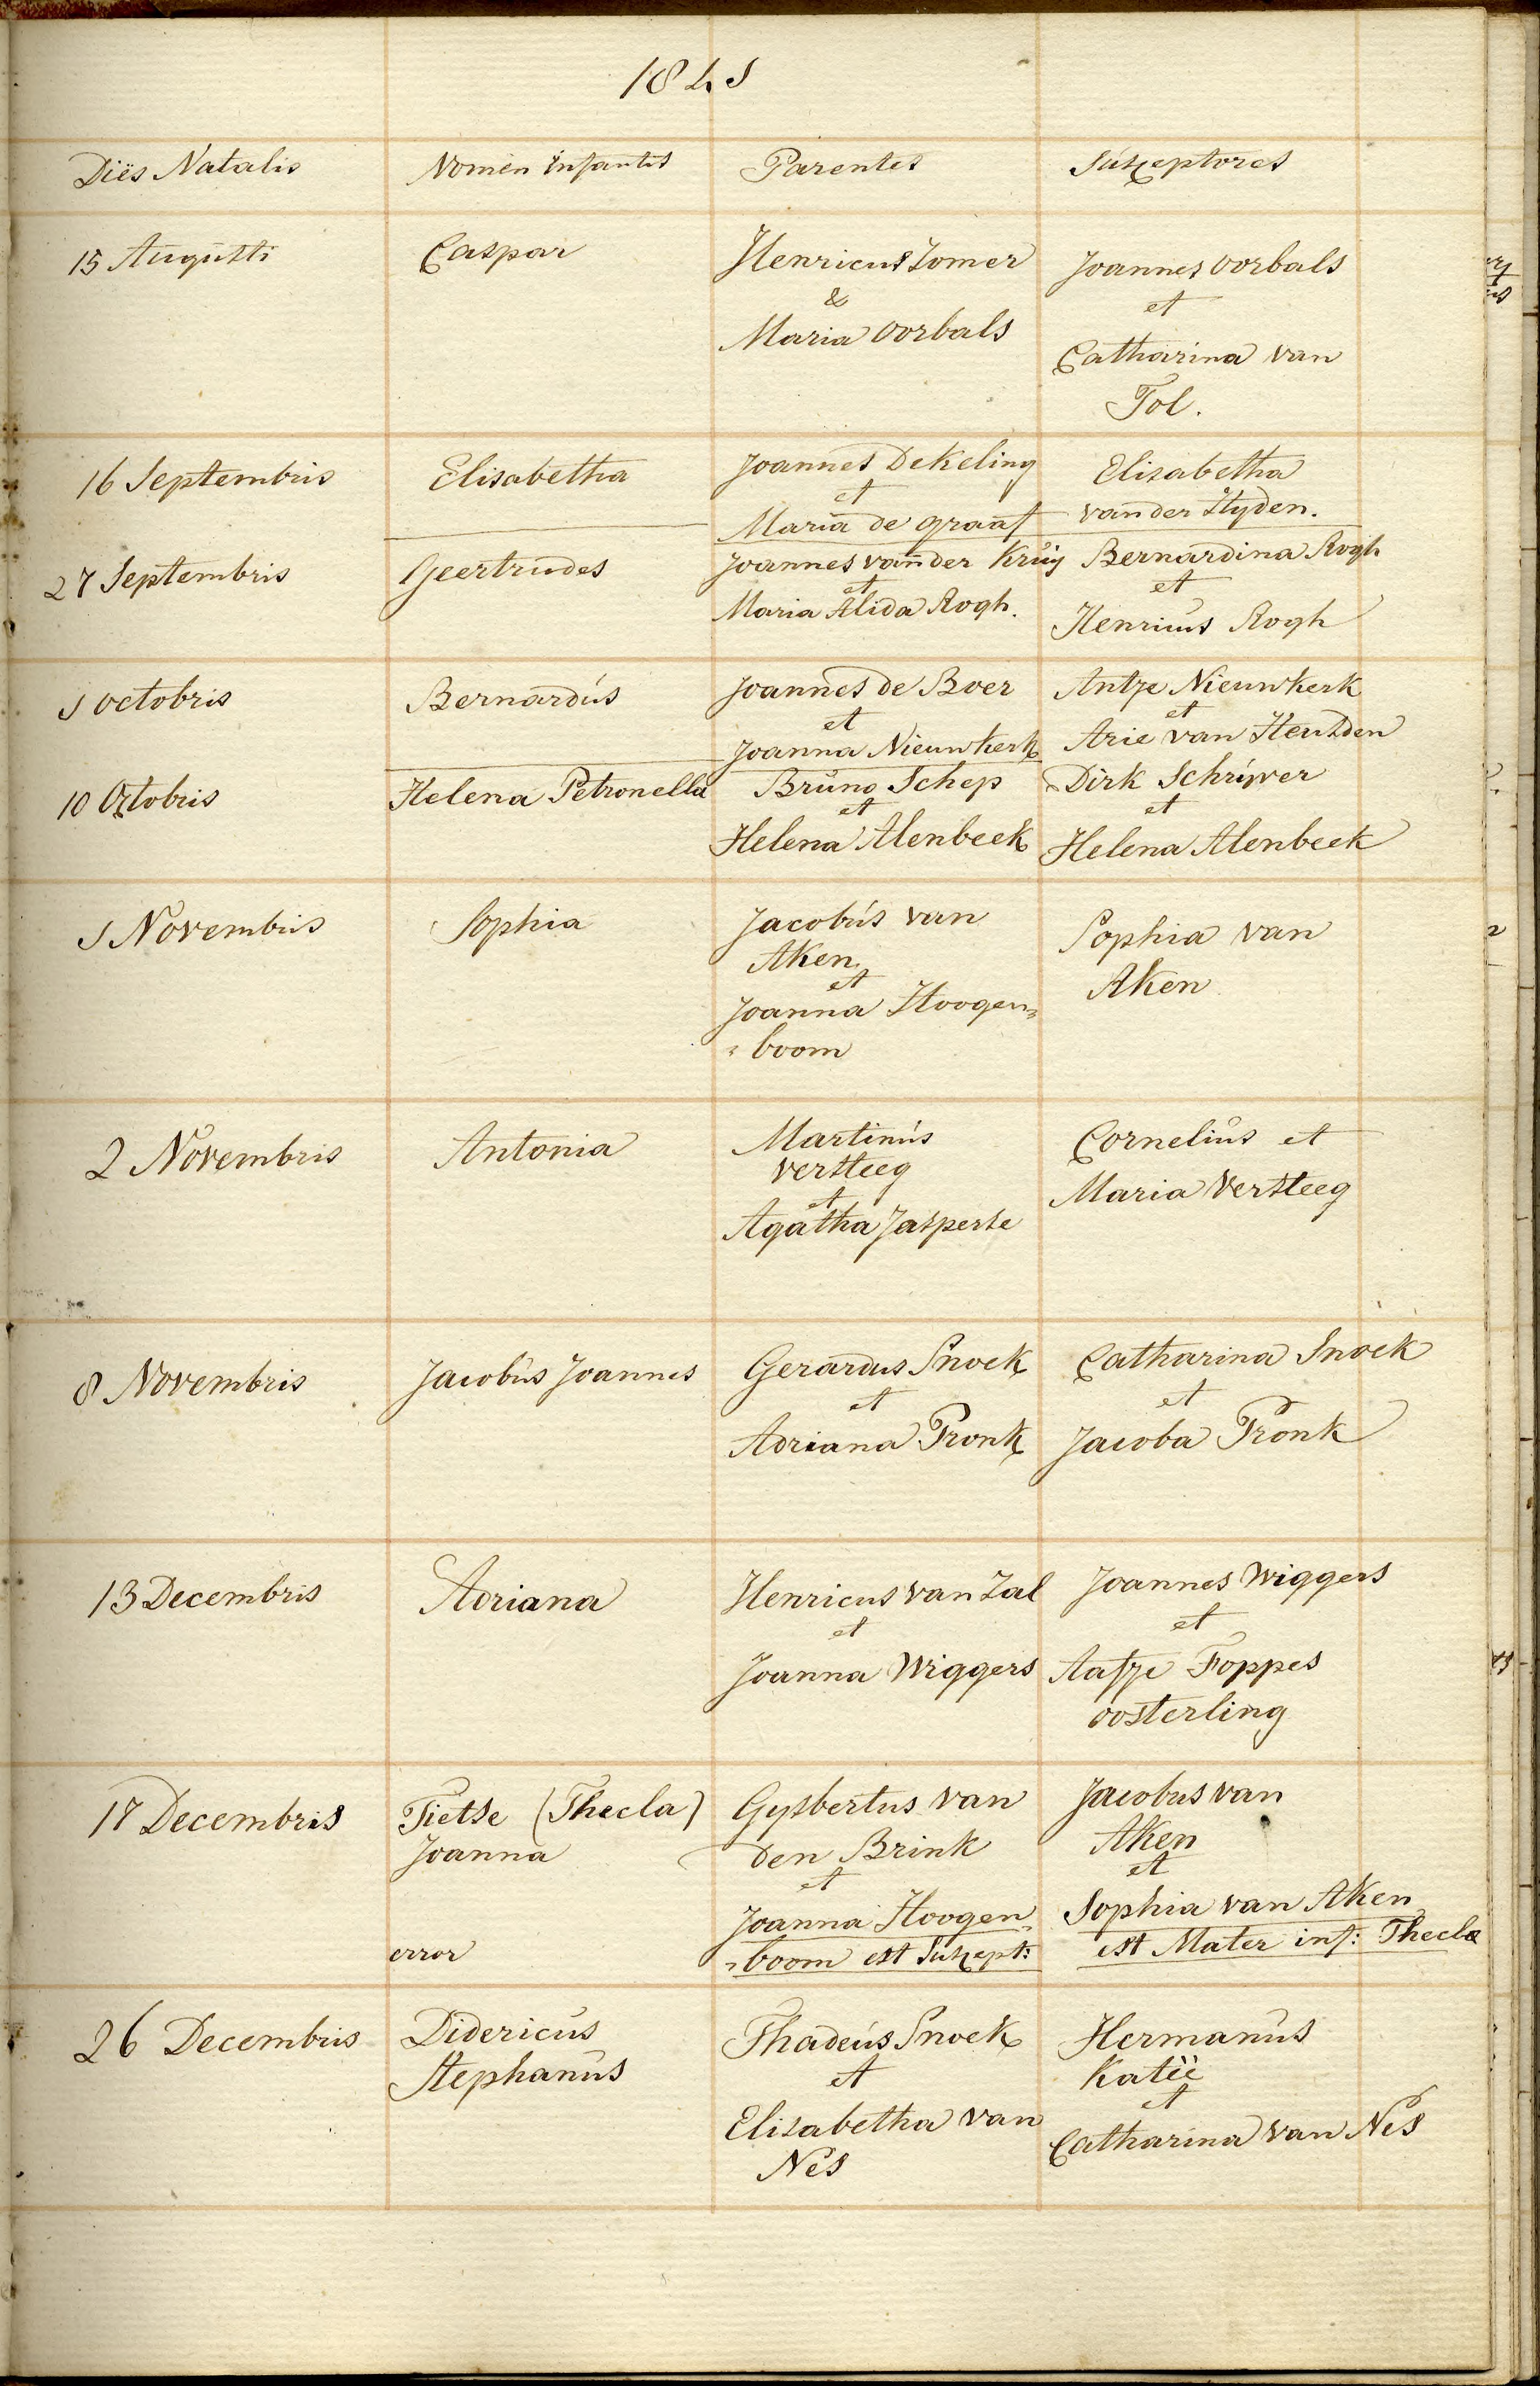 1845
Diës Natalis Nomen Infantis Parentes Susceptores
15 Augusti Caspar Henricus Zomer Joannes Oorbals
& et
Maria Oorbals Catharina van
Tol.
16 Septembris Elisabetha Joannes Dekeling Elisabetha
et
Maria de graaf van der Hyden.
27 Septembris Geertrudes Joannes van der Kruy Bernardina Rogh
et et
Maria Alida Rogh. Henricus Rogh
5 octobris Bernardus Joannes de Boer Antje Nieuwkerk
et et
Joanna Nieuwkerk Arie van Heusden
10 Octobris Helena Petronella Bruno Schep Dirk Schrijver
et et
Helena Alenbeek Helena Alenbeek
5 Novembris Sophia Jacobus van Sophia van
Aken Aken
et
Joanna Hoogen=
=boom
2 Novembris Antonia Martinus Cornelius et
versteeg Maria Versteeg
et
Agatha Jasperse
8 Novembris Jacobus Joannes Gerardus Snoek Catharina Snoek
et et
Adriana Pronk Jacoba Pronk
13 Decembris Adriana Henricus van Zal Joannes Wiggers
et et
Joanna Wiggers Aafje Foppes
oosterling
17 Decembris Tietse (Thecla) Gysbertus van Jacobus van
Joanna den Brink Aken
et et
Joanna Hoogen= Sophia van Aken
error =boom est Suscept: est Mater inf: Thecla
26 Decembris Didericus Thadeus Snoek Hermanus
Stephanus et Katië
et
Elisabetha van Catharina van Nes
Nes